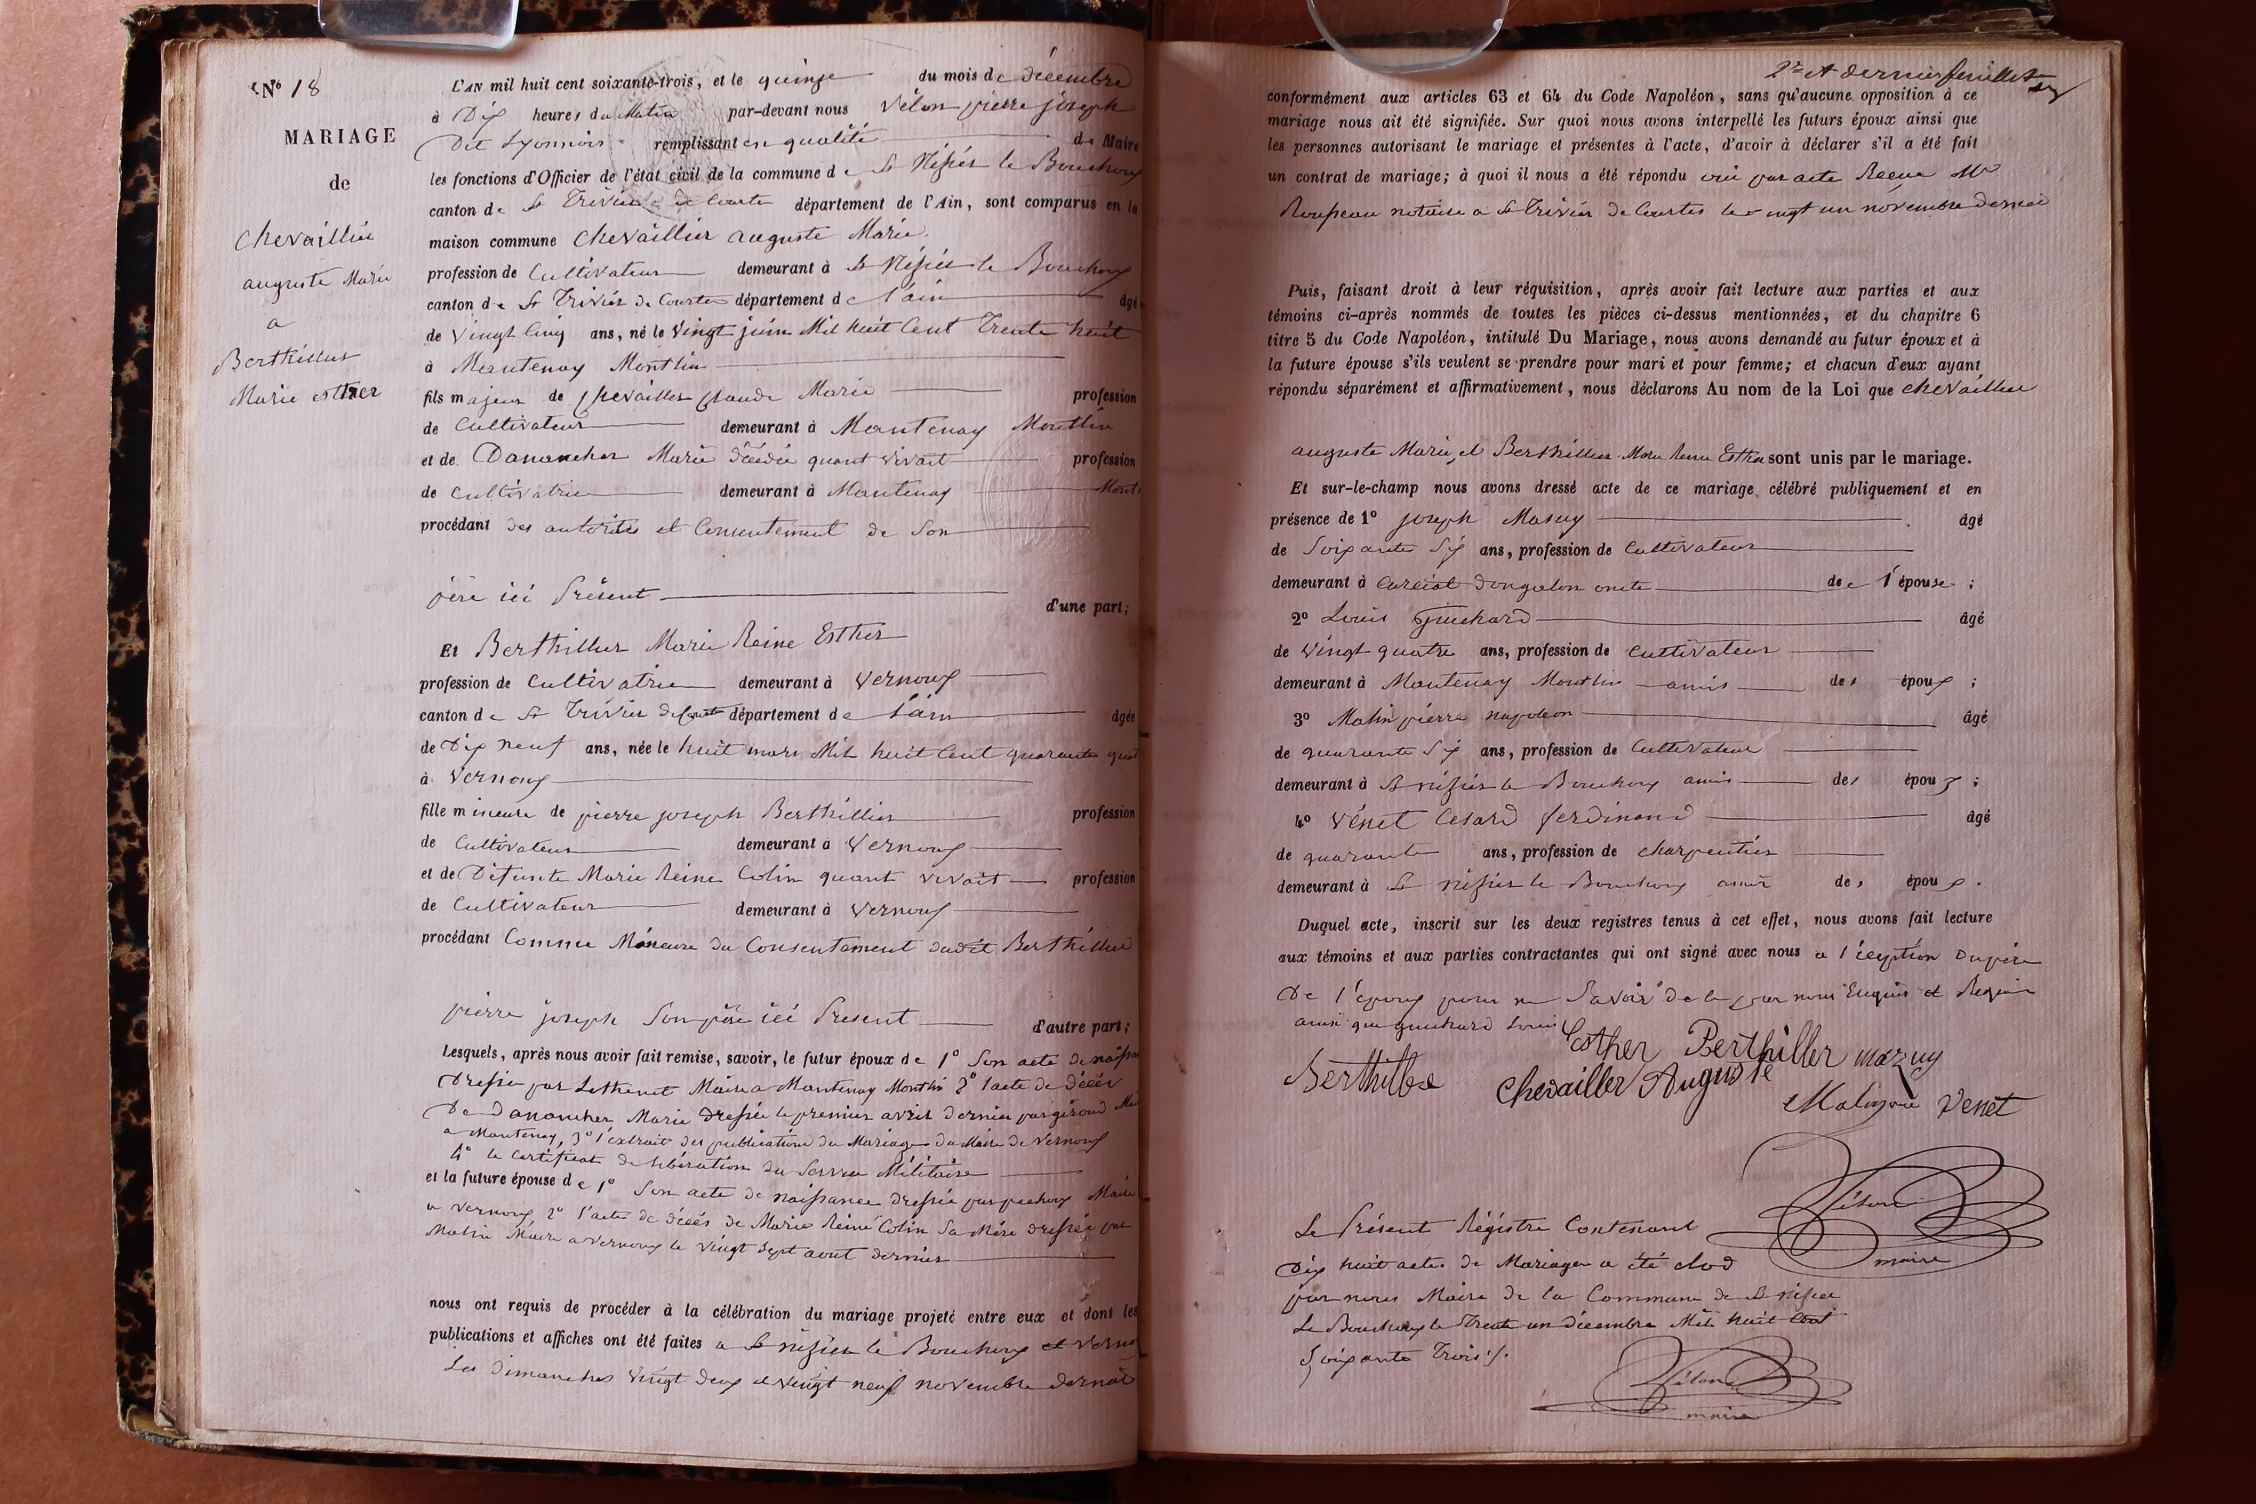 N° 18
MARIAGE
de
Chevaillier
auguste Marie
a
Berthillier
Marie esther
L'AN mil huit cent soixante-trois, et le quinze du mois de décembre
à Dix heures du Matin par-devant nous Vélon pierre joseph
Dit Lyonnois remplissant en qualité de Maire
les fonctions d'Officier de l'état civil de la commune de St Nizier le Bouchoux
canton de St Trivier de Courtes département de l'Ain, sont comparus en la
maison commune Chevaillier auguste Marie
profession de Cultivateur demeurant à St Nizier le Bouchoux
canton de St Trivier de Courtes département de l'ain âgé
de Vingt Cinq ans, né le Vingt juin Mil huit Cent Trente huit
à Mantenay Montlin
fils majeur de Chevailler Claude Marie profession
de Cultivateur demeurant à Mantenay Montlin
et de Danancher Marie décédée quant vivait profession
de Cultivatrice demeurant à Mantenay Montl
procédant des autorités et Consentement de Son
père ici Présent d'une part;
Et Berthillier Marie Reine Esther
profession de Cultivatrice demeurant à Vernoux
canton de St Trivier de Courtes département de l'ain âgée
de Dix neuf ans, née le huit mars Mil huit Cent quarante quat
à Vernoux
fille mineure de pierre joseph Berthillier profession
de Cultivateur demeurant à Vernoux
et de Défunte Marie Reine Colin quant vivait profession
de Cultivateur demeurant à Vernoux
procédant Comme Méneure du Consentement dudit Berthillier
pierre joseph Son père ici Présent d'autre part;
Lesquels, après nous avoir fait remise, savoir, le futur époux de 1° Son acte de naissan
Dressée par Maire a Mantenay Montlin 2° l'acte de décès
De Danancher Marie dressée le premier avril dernier par géroud Mai
a Mantenay, 3° l'extrait des publications du Mariage du Maire de Vernoux
4° le Certificat de libération du Service Militaire
et la future épouse de 1° Son acte de naissance dressée par pochoux Maire
a Vernoux 2° l'acte de décès de Marie Reine Colin Sa Mère dressée par
Matin Maire a Vernoux le Vingt Sept aout dernier
nous ont requis de procéder à la célébration du mariage projeté entre eux et dont les
publications et affiches ont été faites a St nizier le Bouchoux et Verno
Les Dimanches Vingt deux et Vingt neuf novembre dernier
2me et dernier feuillet
conformément aux articles 63 et 64 du Code Napoléon, sans qu'aucune opposition à ce
mariage nous ait été signifiée. Sur quoi nous avons interpellé les futurs époux ainsi que
les personnes autorisant le mariage et présentes à l'acte, d'avoir à déclarer s'il a été fait
un contrat de mariage; à quoi il nous a été répondu oui par acte Recue Me
notaire a St Trivier de Courtes le vingt un novembre dernier
Puis, faisant droit à leur réquisition, après avoir fait lecture aux parties et aux
témoins ci-après nommés de toutes les pièces ci-dessus mentionnées, et du chapitre 6
titre 5 du Code Napoléon, intitulé Du Mariage, nous avons demandé au futur époux et à
la future épouse s'ils veulent se prendre pour mari et pour femme; et chacun d'eux ayant
répondu séparément et affirmativement, nous déclarons Au nom de la Loi que Chevaillier
auguste Marie, et Berthillier Marie Reine Esther sont unis par le mariage.
Et sur-le-champ nous avons dressé acte de ce mariage célébré publiquement et en
présence de 1° joseph Mazuy âgé
de Soixante Six ans, profession de Cultivateur
demeurant à Curciat dongalon oncle de l'épouse;
2° Louis Guichard âgé
de Vingt quatre ans, profession de Cultivateur
demeurant à Mantenay Montlin amis des époux;
3° Matin pierre napoleon âgé
de quarante Six ans, profession de Cultivateur
demeurant à St nizier le Bouchoux amis des époux;
4° Vénet Cesard ferdinand âgé
de quarante ans, profession de charpentier
demeurant à St nizier le Bouchoux amis des époux.
Duquel acte, inscrit sur les deux registres tenus à cet effet, nous avons fait lecture
aux témoins et aux parties contractantes qui ont signé avec nous a l'éxeption du père
De l'époux pour ne Savoir de le par nous Enquis et Requis
ainsi que guichard Louis
Esther Berthiller mazuy
Berthillie Chevailler Auguste
Matin Venet
Vélon
maire
Le Présent Régistre Contenant
Dix huit actes de Mariages a été clod
par nous Maire de la Commune de St nizier
Le Bouchoux le Trente un décembre Mil huit Cent
Soixante Trois.
Vélon
maire